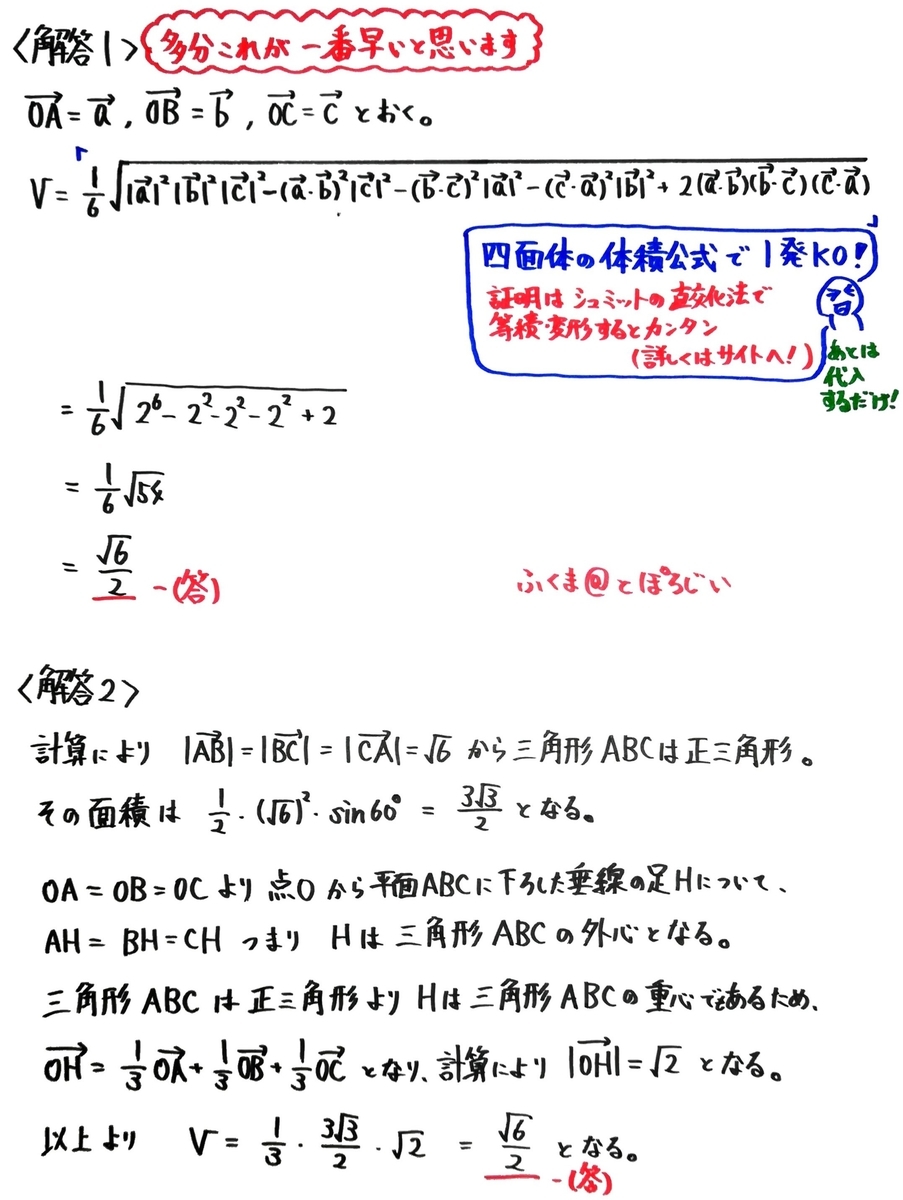 〈解答1〉 多分これが一番早いと思います
→OA = →a , →OB = →b , →OC = →c とおく。
V = 1/6 √(|→a|²|→b|²|→c|² - (→a・→b)²|→c|² - (→b・→c)²|→a|² - (→c・→a)²|→b|² + 2(→a・→b)(→b・→c)(→c・→a))
四面体の体積公式で1発KO!
証明はシュミットの直交化法で
等積変形するとカンタン
(詳しくはサイトへ!)
あとは
代入
するだけ!
= 1/6 √(2⁶ - 2² - 2² - 2² + 2)
= 1/6 √54
= √6/2 -(答)
ふくま@とぽろじい
〈解答2〉
計算により |→AB| = |→BC| = |→CA| = √6 から三角形ABCは正三角形。
その面積は 1/2・(√6)²・sin60° = 3√3/2 となる。
OA = OB = OC より 点Oから平面ABCに下ろした垂線の足Hについて、
AH = BH = CH つまり Hは三角形ABCの外心となる。
三角形ABCは正三角形よりHは三角形ABCの重心でもあるため、
→OH = 1/3 →OA + 1/3 →OB + 1/3 →OC となり、計算により |→OH| = √2 となる。
以上より V = 1/3・3√3/2・√2 = √6/2 となる。 -(答)